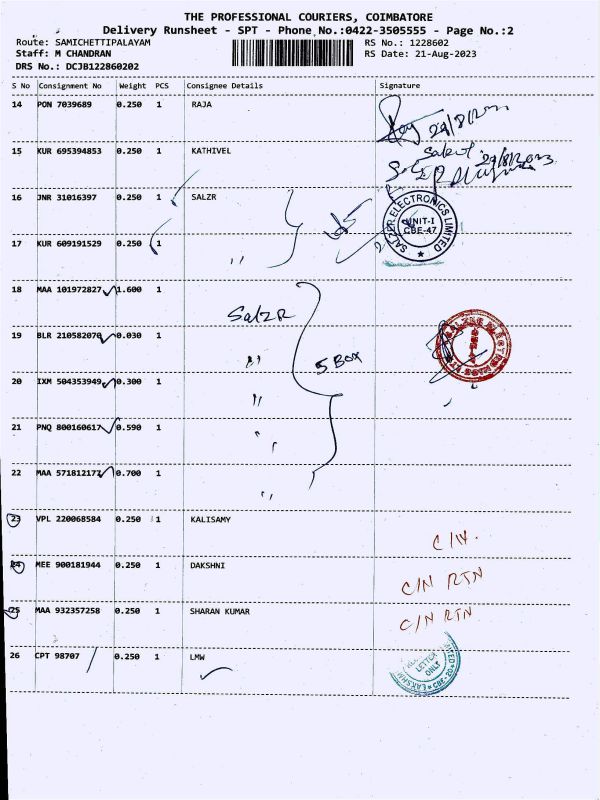 THE PROFESSIONAL COURIERS, COIMBATORE
Delivery Runsheet - SPT - Phone No.:0422-3505555 - Page No.:2
Route: SAMICHETTIPALAYAM RS No.: 1228602
Staff: M CHANDRAN RS Date: 21-Aug-2023
DRS No.: DCJB122860202
S No Consignment No Weight PCS Consignee Details Signature
14 PON 7039689 0.250 1 RAJA
15 KUR 695394853 0.250 1 KATHIVEL
16 JNR 31016397 0.250 1 SALZR
SALZER ELECTRONICS LIMITED
UNIT-I
CBE-47
17 KUR 609191529 0.250 1 ,,
18 MAA 101972827 1.600 1 Salzr
19 BLR 210582070 0.030 1 ,,
5 Box
20 IXM 504353949 0.300 1 ,,
21 PNQ 800160617 0.590 1 ,,
22 MAA 571812177 0.700 1 ,,
23 VPL 220068584 0.250 1 KALISAMY
24 MEE 900181944 0.250 1 DAKSHNI C/N RTN
25 MAA 932357258 0.250 1 SHARAN KUMAR C/N RTN
26 CPT 98707 0.250 1 LMW
LETTER
ONLY